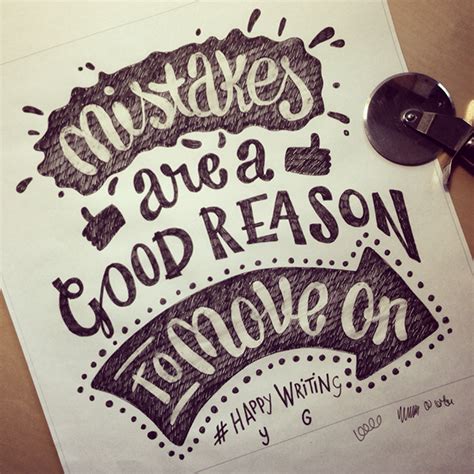 mistakes
are a
GOOD REASON
TO MOVE On
# HAPPY WRITING
y G